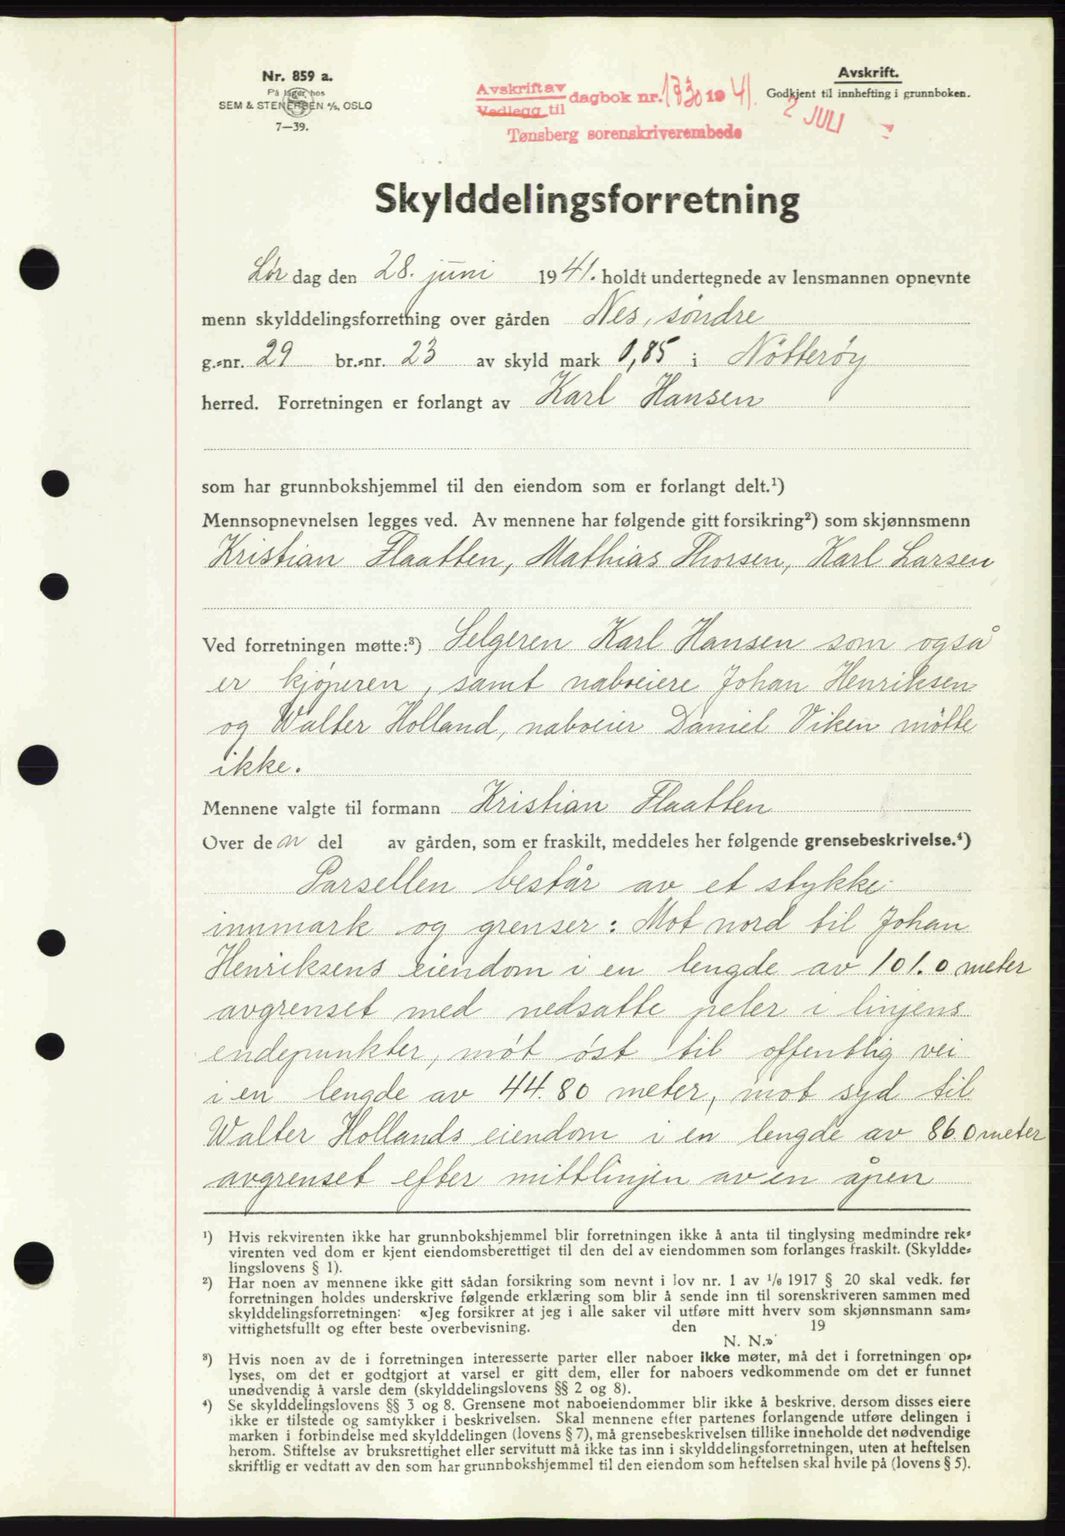 Nr. 859 a.
På lager hos
SEM & STENERSEN A/S, OSLO
7—39.
Avskrift av
Vedlegg til
dagbok nr. 1730 1941.
Tønsberg sorenskriverembede
Avskrift.
Godkjent til innhefting i grunnboken.
2 JULI
Skylddelingsforretning
Lør dag den 28. juni 1941. holdt undertegnede av lensmannen opnevnte
menn skylddelingsforretning over gården Nes, söndre
g.-nr. 29 br.-nr. 23 av skyld mark 0,85 i Nötteröy
herred. Forretningen er forlangt av Karl Hansen
som har grunnbokshjemmel til den eiendom som er forlangt delt.¹)
Mennsopnevnelsen legges ved. Av mennene har følgende gitt forsikring²) som skjønnsmenn
Kristian Flaatten, Mathias Thorsen, Karl Larsen
Ved forretningen møtte:³) Selgeren Karl Hansen som også
er kjöperen, samt naboeiere Johan Henriksen
og Walter Holland, naboeier Daniel Viken mötte
ikke.
Mennene valgte til formann Kristian Flaatten
Over den del av gården, som er fraskilt, meddeles her følgende grensebeskrivelse.⁴)
Parsellen består av et stykke
innmark og grenser: Mot nord til Johan
Henriksens eiendom i en lengde av 101.0 meter
avgrenset med nedsatte peler i linjens
endepunkter, möt öst til offentlig vei
i en lengde av 44.80 meter, mot syd til
Walter Hollands eiendom i en lengde av 86.0 meter
avgrenset efter mittlinjen av en åpen
¹) Hvis rekvirenten ikke har grunnbokshjemmel blir forretningen ikke å anta til tinglysing medmindre rek-
virenten ved dom er kjent eiendomsberettiget til den del av eiendommen som forlanges fraskilt. (Skyldde-
lingslovens § 1).
²) Har noen av mennene ikke gitt sådan forsikring som nevnt i lov nr. 1 av 1/6 1917 § 20 skal vedk. før
forretningen holdes underskrive følgende erklæring som blir å sende inn til sorenskriveren sammen med
skylddelingsforretningen: «Jeg forsikrer at jeg i alle saker vil utføre mitt hverv som skjønnsmann sam-
vittighetsfullt og efter beste overbevisning. den 19
N. N.»
³) Hvis noen av de i forretningen interesserte parter eller naboer ikke møter, må det i forretningen op-
lyses, om det er godtgjort at varsel er gitt dem, eller for naboers vedkommende om det er funnet
unødvendig å varsle dem (skylddelingslovens §§ 2 og 8).
⁴) Se skylddelingslovens §§ 3 og 8. Grensene mot naboeiendommer blir ikke å beskrive, dersom disses eiere
ikke er tilstede og samtykker i beskrivelsen. Skal mennene efter partenes forlangende utføre delingen i
marken i forbindelse med skylddelingen (lovens § 7), må grensebeskrivelsen tillike inneholde det nødvendige
herom. Stiftelse av bruksrettighet eller servitutt må ikke tas inn i skylddelingsforretningen, uten at heftelsen
skriftlig er vedtatt av den som har grunnbokshjemmel til den eiendom som heftelsen skal hvile på (lovens § 5).